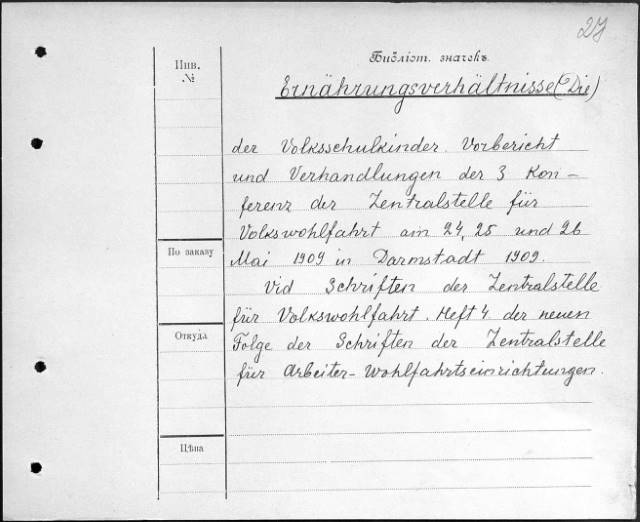 27
Библіот. значекъ
Инв.
№
Ernährungsverhältnisse (Die)
der Volksschulkinder. Vorbericht
und Verhandlungen der 3 Kon-
ferenz der Zentralstelle für
Volkswohlfahrt am 24, 25 und 26
Mai 1909 in Darmstadt 1909.
По заказу
Vid Schriften der Zentralstelle
für Volkswohlfahrt. Heft 4 der neuen
Откуда
Folge der Schriften der Zentralstelle
für Arbeiter-Wohlfahrtseinrichtungen.
Цѣна